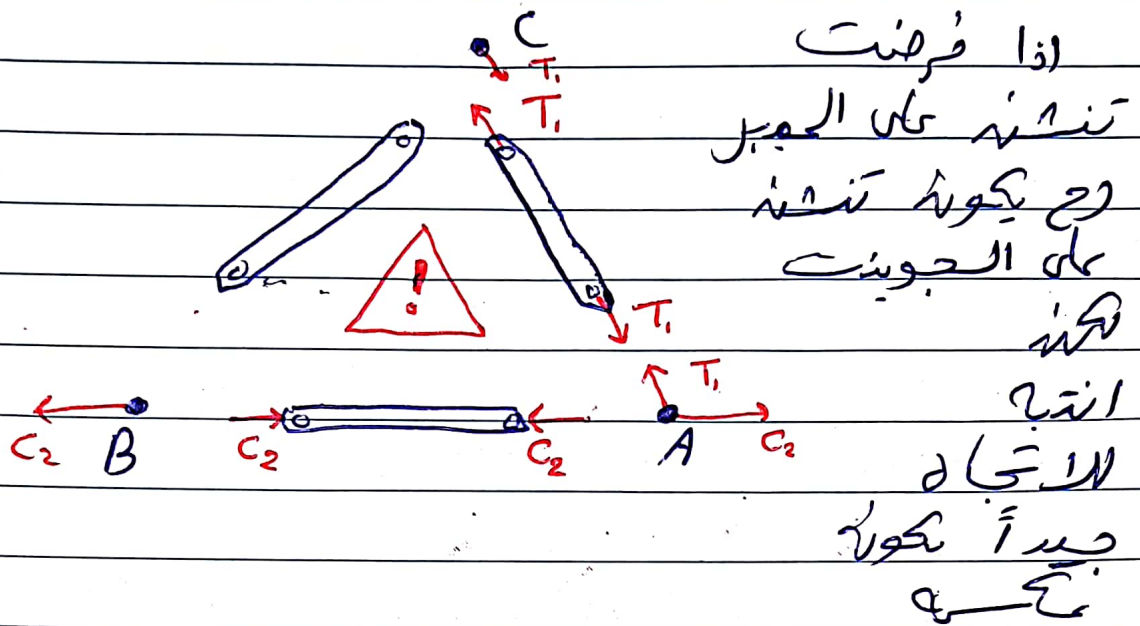 C
T₁
T₁
اذا فرضت
تنشن على الممبر
رح يكون تنشن
على الجوينت
لكن
انتبه
للاتجاه
جيداً يكون
عكسه
!
T₁
T₁
C₂ B C₂ C₂ A C₂